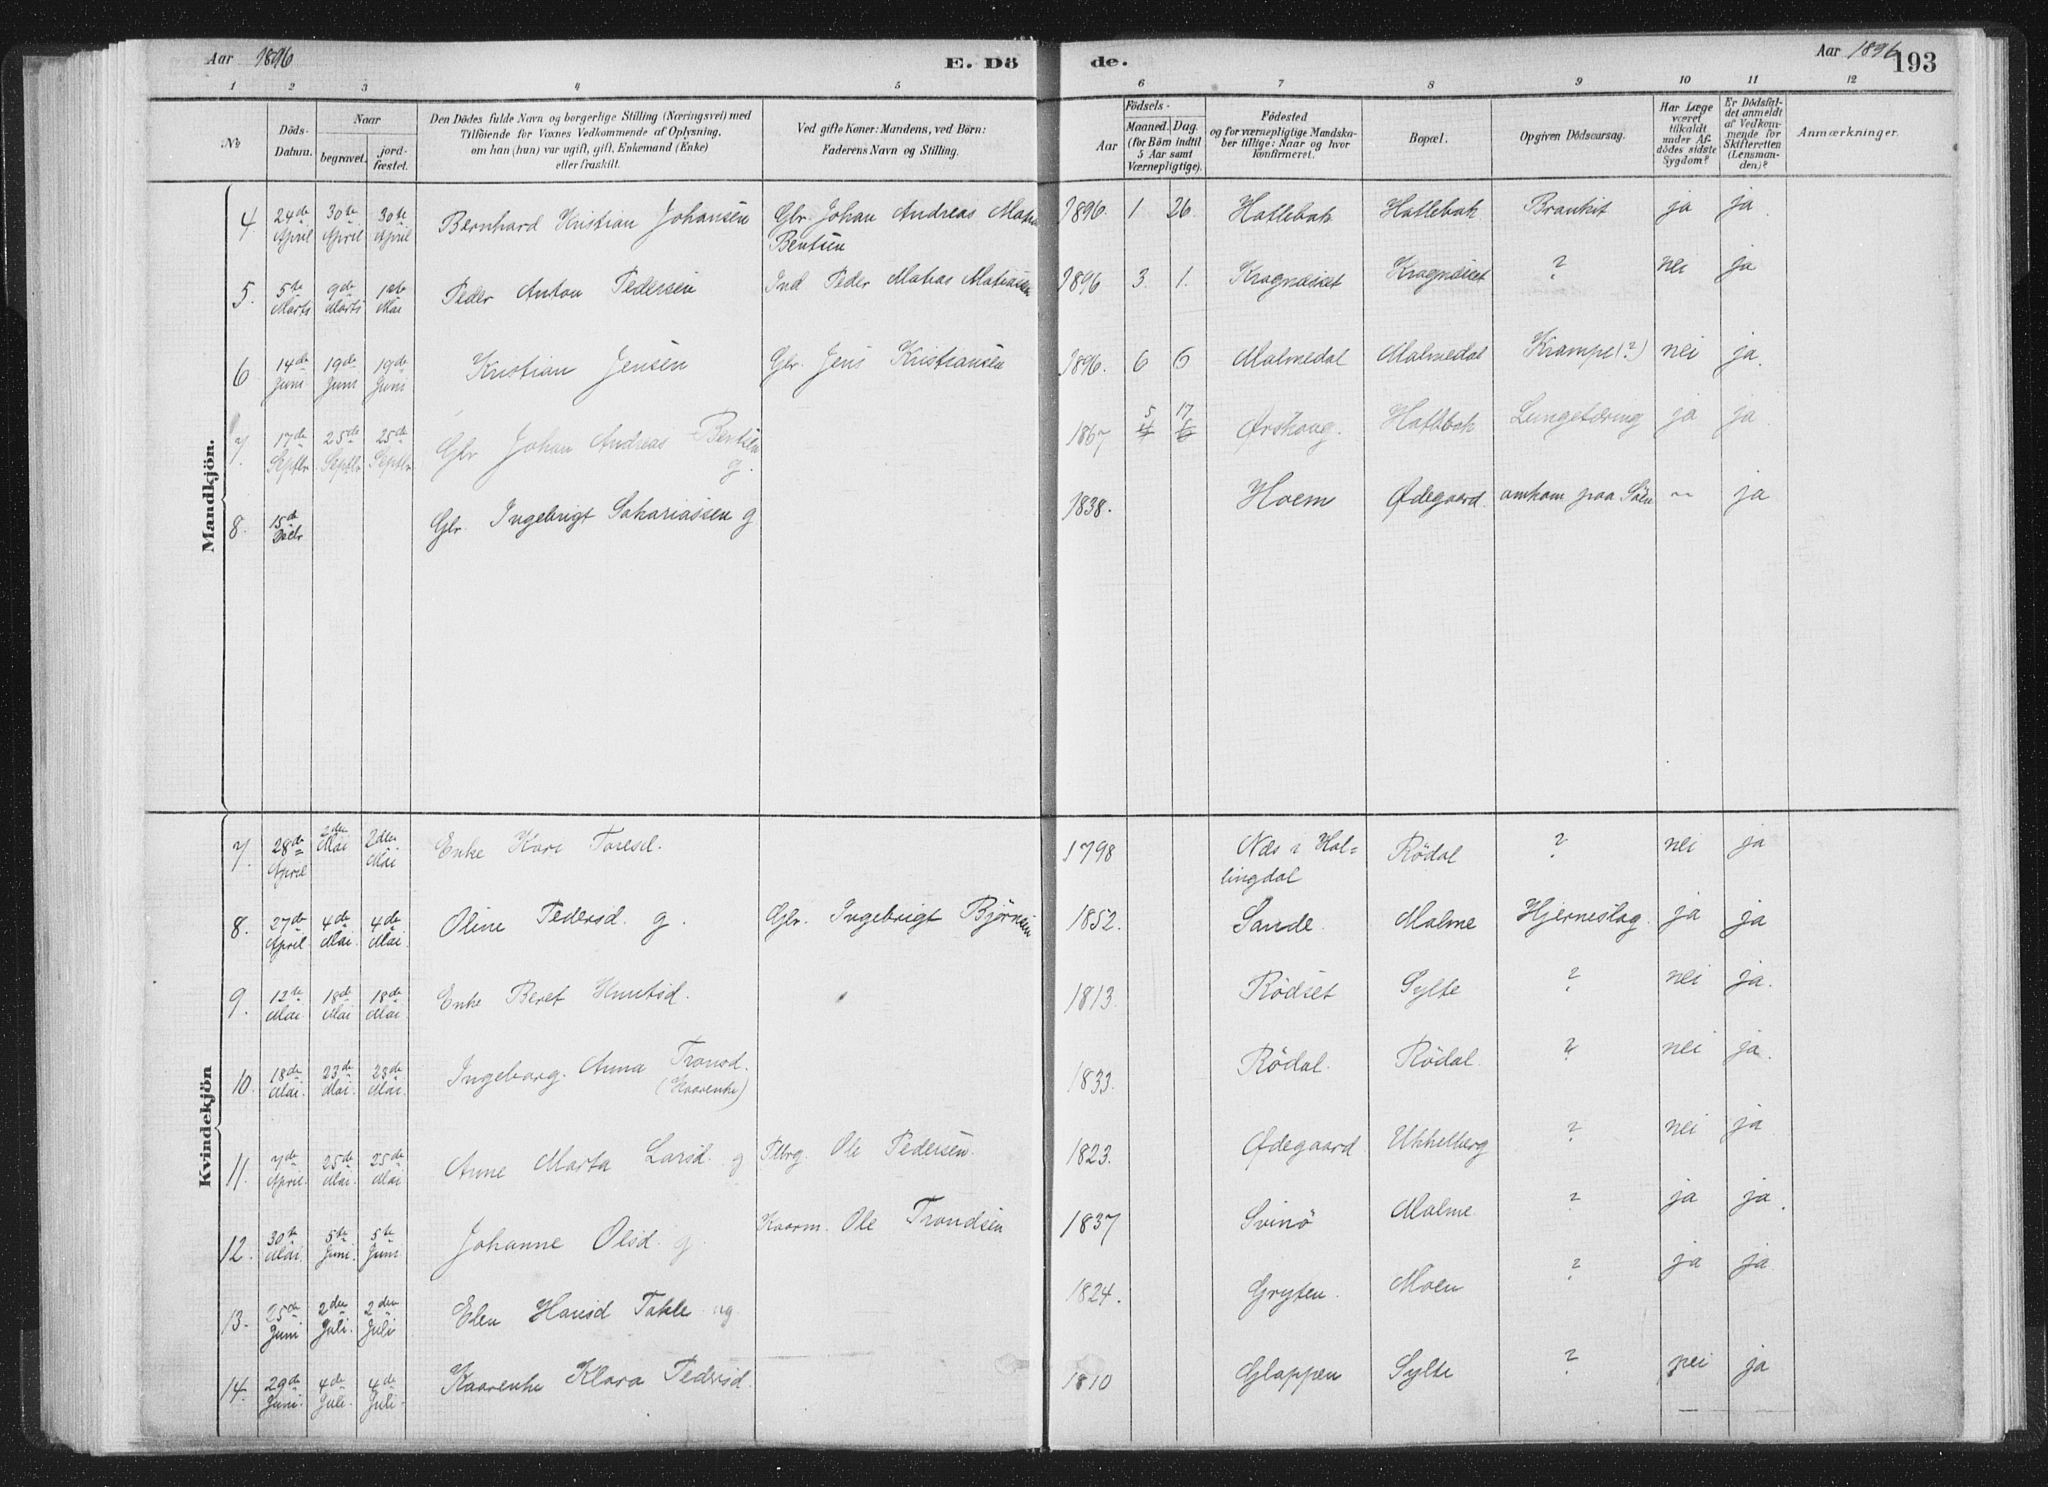 Aar 1896
E. Dö
de.
Aar 1896
193
1 2 3 4 5 6 7 8 9 10 11 12
No
Döds-Datum.
Naar
begravet.
jord-fæstet.
Den Dödes fulde Navn og borgerlige Stilling (Næringsvei) med
Tilföiende for Voxnes Vedkommende af Oplysning,
om han (hun) var ugift, gift, Enkemand (Enke)
eller fraskilt.
Ved gifte Koner: Mandens, ved Börn:
Faderens Navn og Stilling.
Födsels-
Aar
Maaned. Dag.
(for Börn indtil
5 Aar samt
Værnepligtige).
Födested
og for værnepligtige Mandska-
ber tillige: Naar og hvor
konfirmeret.
Bopæl.
Opgiven Dödsaarsag.
Har Læge
været
tilkaldt
under Af-
dödes sidste
Sygdom?
Er Dödsfal-
det anmeldt
af Vedkom-
mende for
Skifteretten
(Lensman-
den)?
Anmærkninger.
Mandkjön.
4 24de April 30te April 30te April Bernhard Kristian Johansen Gbr. Johan Andreas
Bentsen 1896. 1 26. Hatlebak Hatlebak Bronkit ja ja.
5. 5te Marts 9de Marts 1ste Mai Peder Anton Pedersen Ind Peder Matias Matiassen 1896 3. 1. Kragnæset Kragnæset ? nei ja
6 14de Juni 19de Juni 19de Juni Kristian Jensen Gbr. Jens Kristiansen 1896. 6 6 Malmedal Malmedal Krampe(?) nei ja.
7. 17de Septbr. 25de Septbr. 25de Septbr. Gbr Johan Andreas Bentsen
g. 1867 5 17 Ørskoug. Hatlebak Lungetæring ja ja
8. 15de Gbr. Ingebrigt Sakariassen g 1838. Hoem Ødegaard. omkom paa Söen ~ ja
Kvindekjön
7. 28de April 2den Mai 2den Mai Enke Kari Toresd. 1798 Næs i Hal=
lingdal Rödal ? nei ja
8. 27de April 4de Mai. 4de Mai. Oline Pedersd. g. Gbr. Ingebrigt Bjørnsen 1852. Sande. Malme Hjerneslag. ja ja
9. 12te Mai 18de Mai 18de Mai. Enke Beret Knutsd. 1813. Rödset Sylte ? nei ja.
10. 18de Mai. 23de Mai. 23de Mai. Ingeborg Anna Tronsd.
(Kaarenke) 1833. Rödal. Rödal. ? nei ja.
11. 7de April. 25de Mai. 25de Mai Anne Marta Larsd. g Ole Pedersen. 1823. Ødegaard Ukkelberg ? nei ja
12. 30te Mai. 5te Juni. 5te Juni Johanne Olsd. g. Kaarm. Ole Trondsen 1837 Svinö Malme ? ja ja.
13. 25de Juni 2den Juli. 2den Juli Elen Hansd Takle ug. 1824. Gryten. Moen ? ja ja
14. 29de Juni. 4de Juli. 4de Juli. Kaarenke Klara Pedersd. 1810 Glappen Sylte ? nei ja